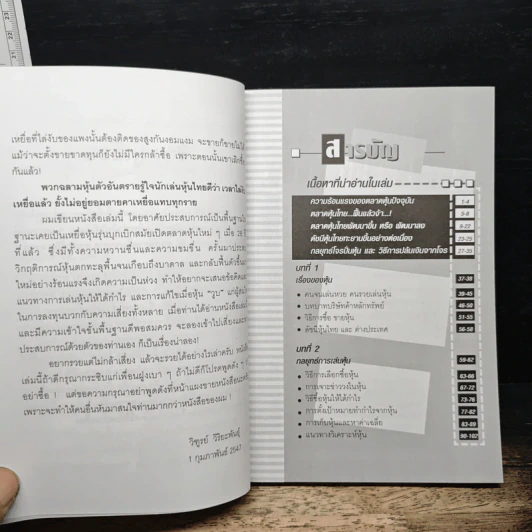 เหยื่อที่ไล่งับของแพงนั้นต้องติดของสูงกันงอมแงม จะขายก็ขายไม่ได้
แม้ว่าจะตั้งขายขาดทุนก็ยังไม่มีใครกล้าซื้อ เพราะตอนนั้นเขาเลิก
กันแล้ว!
พวกฉลามหุ้นตัวอันตรายรู้ใจนักเล่นหุ้นไทยดีว่า เวลา
เหยื่อแล้ว ยังไม่อยู่ยอมตายคาเหยื่อแทบทุกราย
ผมเขียนหนังสือเล่มนี้ โดยอาศัยประสบการณ์เป็นพื้นฐาน
ฐานะเคยเป็นเหยื่อหุ้นรุ่นบุกเบิกสมัยเปิดตลาดหุ้นใหม่ ๆ เมื่อ 28
ที่แล้ว ซึ่งมีทั้งความหวานชื่นและความขมขื่น ครั้นมา
วิกฤติการณ์หุ้นตกทะลุพื้นจนเกือบถึงบาดาล และกลับฟื้นตัวขึ้น
ใหม่อย่างร้อนแรงจึงเกิดความเป็นห่วง ทำให้อยากจะเสนอข้อคิด
แนวทางการเล่นหุ้นให้ได้กำไร และการแก้ไขเมื่อหุ้น "วูบ" แก่ผู้
ในการลงทุนบวกกับความเสี่ยงทั้งหลาย เมื่อท่านได้อ่านหนังสือ
และมีความเข้าใจขั้นพื้นฐานดีพอสมควร จะลองเข้าไปเสี่ยง
ประสบการณ์ด้วยตัวของท่านเอง ก็เป็นเรื่องน่าลอง!
อยากรวยแต่ไม่กล้าเสี่ยง แล้วจะรวยได้อย่างไรล่ะครับ หนังสือ
เล่มนี้ถ้าดีกรุณากระซิบแก่เพื่อนฝูงเบา ๆ ถ้าไม่ดีก็โปรดพูดดัง ๆ
อย่าซื้อ ! แต่ขอความกรุณาอย่าพูดดังที่หน้าแผงขายหนังสือ
เพราะจะทำให้คนอื่นหันมาสนใจท่านมากกว่าหนังสือของผม !
วิฑูรย์ วิริยะพันธุ์
1 กุมภาพันธ์
สารบัญ
เนื้อหาที่น่าอ่านในเล่ม
ความร้อนแรงของตลาดหุ้นปัจจุบัน 1-4
ตลาดหุ้นไทย...ฟื้นแล้วจ้า...! 5-8
ตลาดหุ้นไทยพัฒนาขึ้น หรือ พัฒนาลง 9-22
ดัชนีหุ้นไทยทะยานขึ้นอย่างต่อเนื่อง 23-25
กลยุทธ์โจรปั่นหุ้น และ วิธีการปล้นเงินจากโจร 27-35
บทที่ 1
เรื่องของหุ้น 37-38
• คนจนเล่นหวย คนรวยเล่นหุ้น 39-45
• บทบาทบริษัทค้าหลักทรัพย์ 46-50
• วิธีการซื้อ ขายหุ้น 51-55
• ดัชนีหุ้นไทย และ ต่างประเทศ 56-58
บทที่ 2
กลยุทธ์การเล่นหุ้น 59-62
• วิธีการเลือกซื้อหุ้น 63-66
• การเจาะข่าววงในหุ้น 67-72
• วิธีซื้อหุ้นให้ได้กำไร 73-76
• การตั้งเป้าหมายทำกำไรจากหุ้น 77-82
• การเก็บหุ้นและหาค่าเฉลี่ย 83-89
• แนวทางวิเคราะห์หุ้น 90-102